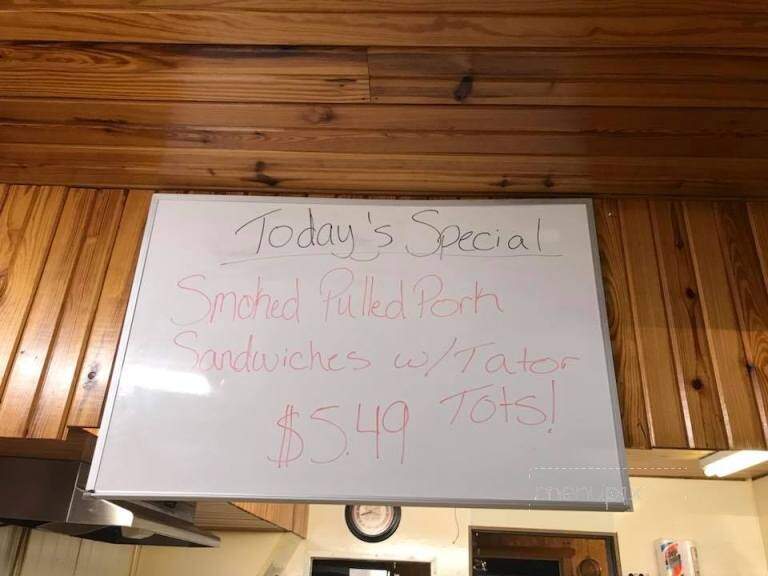 Today's Special
Smoked Pulled Pork
Sandwiches w/Tator
Tots!
$5.49
menupix